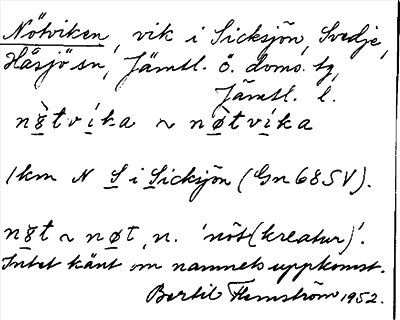 Nötviken, vik i Sicksjön, Svedje,
Håsjö sn, Jämtl. ö. doms. tg,
Jämtl. l.
nø̀tvika ~ nø̀tvika
1 km N S i Sicksjön (Gn 68 SV).
nøt ~ nøt, n. 'nöt(kreatur)'.
Intet känt om namnets uppkomst.
Bertil Flemström 1952.